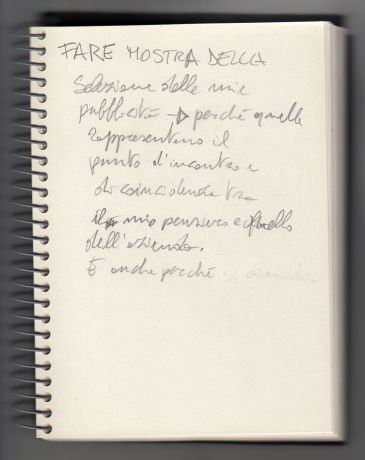 FARE MOSTRA DELLA
Selezione delle mie
pubblicità → perché quelle
rappresentano il
punto d'incontro e
di coincidenza tra
il mio pensiero e quello
dell'azienda.
E anche perché si